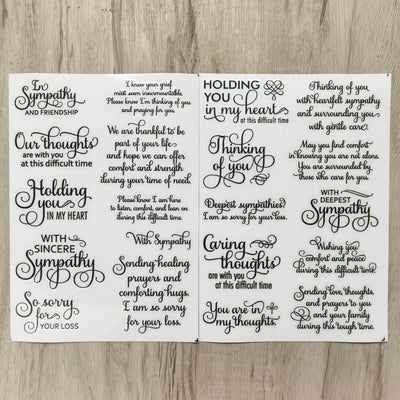 In
Sympathy
AND FRIENDSHIP
Our thoughts
are with you
at this difficult time
Holding
you
IN MY HEART
WITH
SINCERE
Sympathy
So sorry
for
YOUR LOSS
I know your grief
must seem insurmountable.
Please know I'm thinking of you
and praying for you.
We are thankful to be
part of your life
and hope we can offer
comfort and strength
during your time of need.
Please know I am here
to listen, comfort, and lean on
during this difficult time.
With Sympathy
Sending healing
prayers and
comforting hugs.
I am so sorry
for your loss.
HOLDING
YOU
in my heart
at this difficult time
Thinking
of you
Deepest sympathies.
I am so sorry for your loss.
Caring
thoughts
are with you
at this difficult time
You are in
my thoughts.
Thinking of you
with heartfelt sympathy
and surrounding you
with gentle care.
May you find comfort
in knowing you are not alone.
You are surrounded by
those who care for you.
WITH
DEEPEST
Sympathy
Wishing you
comfort and peace
during this difficult time.
Sending love, thoughts,
and prayers to you
and your family
during this tough time.